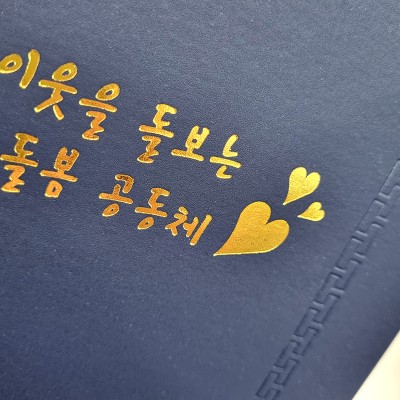 이웃을 돌보는
돌봄 공동체